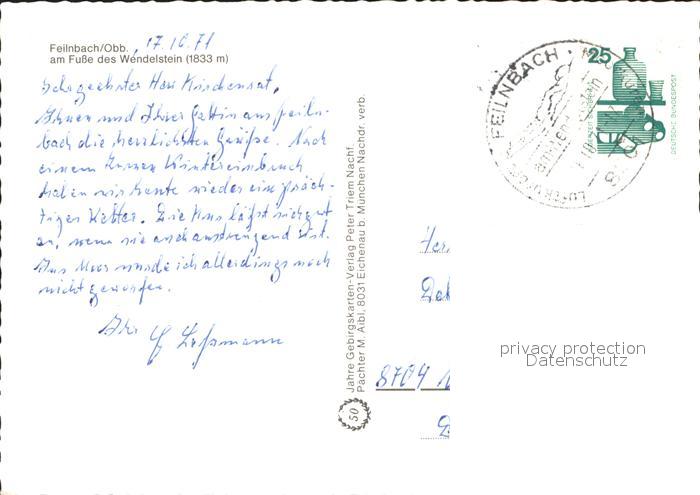 Feilnbach/Obb.
am Fuße des Wendelstein (1833 m)
17.10.71
Sehr geehrter Herr Kirchenrat,
Ihnen und Ihrer Gattin aus Feiln-
bach die herzlichsten Grüße. Nach
einem kurzen Wintereinbruch
haben wir heute wieder ein präch-
tiges Wetter. Die Kur läßt sich gut
an, wenn sie auch anstrengend ist.
Ins Moor wurde ich allerdings noch
nicht geworfen.
Ihr
Jahre Gebirgskarten-Verlag Peter Triem Nachf.
Pächter M. Aibl, 8031 Eichenau b. München Nachdr. verb.
50
FEILNBACH
25
DEUTSCHE BUNDESPOST
Her
8704
privacy protection
Datenschutz